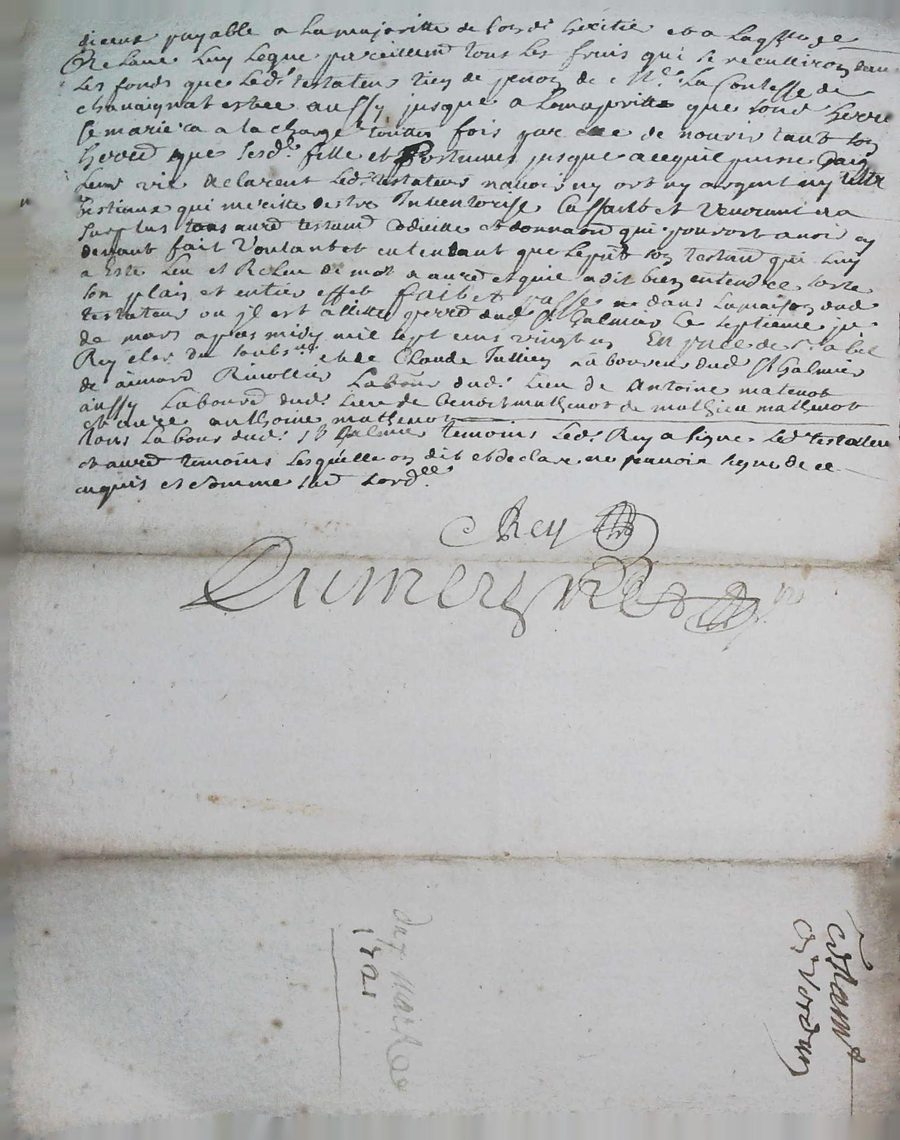 diceux payable a La majoritte de sond. heritie et a La
Relaue Luy Legue pareillemt tous Les fruis qui se recullirons dans
Les fonds que Led. testateur tien de de Me. La Contesse de
aussy jusque a Lamajoritte que sond. herre
se mariera a la charge touttes fois par elle de nourir tant son
herred que sesd. fille et Postumes jusque acequil puisse gaig
Leurs vie declarent Led. testateur navoir ny or ny argent ny
bestiaux qui meritte destre Inventorise Cassant et revocant au
surplus tous autre testamt Codicille et donnaon qui pouroit avoir cy
devant fait Voulant et entendant que Lepnt son testamt qui Luy
a Este Leu et Releu de mot a autre et quil a dit bien entendre sorte
son plain et entier effet fait et passe dans Lamaison dud
testateur ou jl est allitte dud St Galmier Le septieme jr
de mars apres midy mil sept cens vingt un En pnce de Sr abel
Rey clerc du soubsne et de Claude Jullien Laboureur dud St Galmier
de aimard Rivollier Labour dud. Lieu de Antoine matenot
aussy Labourd dud. Lieu de benoit mathenot de mathieu mathenot
et autre anthoine mathenot
tous Labour dud. St Galmier temoins Led. Rey a signe Led. testateur
et autre temoins Lesquelle on dit et declare ne scavoir signe de ce
enquis et somme
Rey
Dumeyne
du 7 Mars
1721
testamt
de Verdun